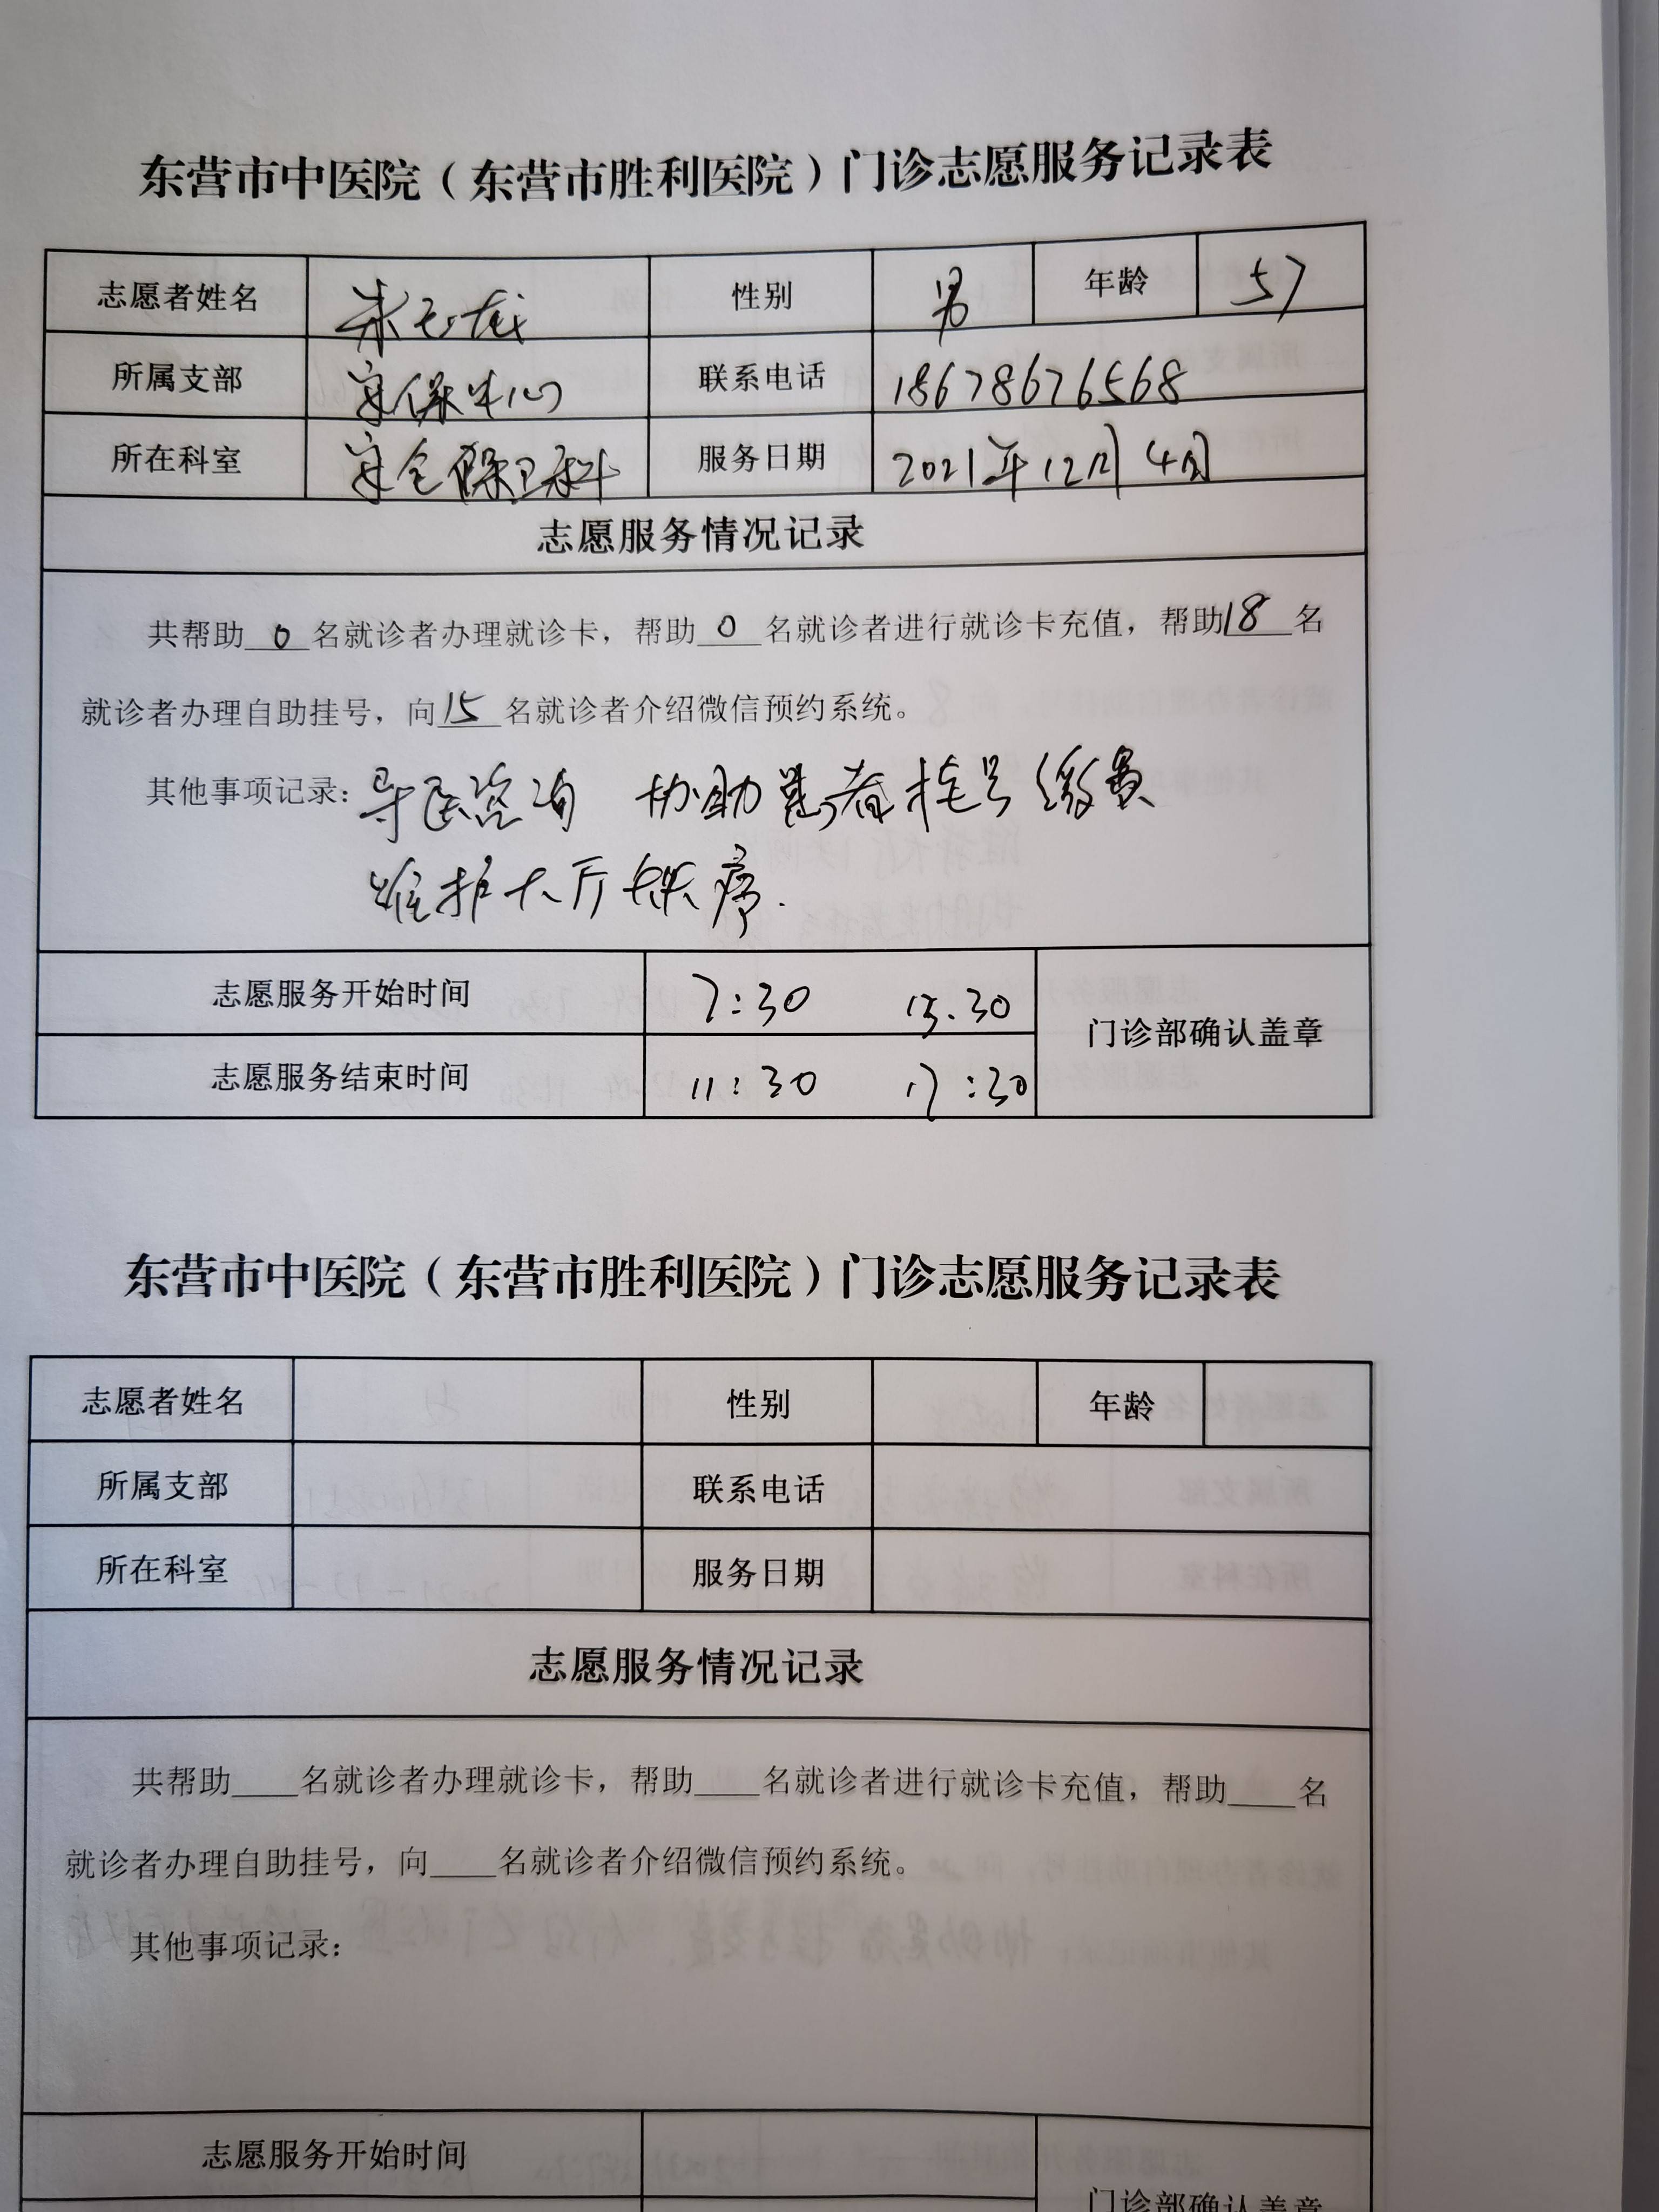 东营市中医院（东营市胜利医院）门诊志愿服务记录表
志愿者姓名 性别 男 年龄 57
所属支部 安保中心 联系电话 18678676568
所在科室 安全保卫科 服务日期 2021年12月4日
志愿服务情况记录
共帮助 0 名就诊者办理就诊卡，帮助 0 名就诊者进行就诊卡充值，帮助 18 名
就诊者办理自助挂号，向 15 名就诊者介绍微信预约系统。
其他事项记录：导医咨询 协助患者挂号缴费
维护大厅秩序.
志愿服务开始时间 7:30 13.30
门诊部确认盖章
志愿服务结束时间 11:30 17:30
东营市中医院（东营市胜利医院）门诊志愿服务记录表
志愿者姓名 性别 年龄
所属支部 联系电话
所在科室 服务日期
志愿服务情况记录
共帮助____名就诊者办理就诊卡，帮助____名就诊者进行就诊卡充值，帮助____名
就诊者办理自助挂号，向____名就诊者介绍微信预约系统。
其他事项记录：
志愿服务开始时间
门诊部确认盖章